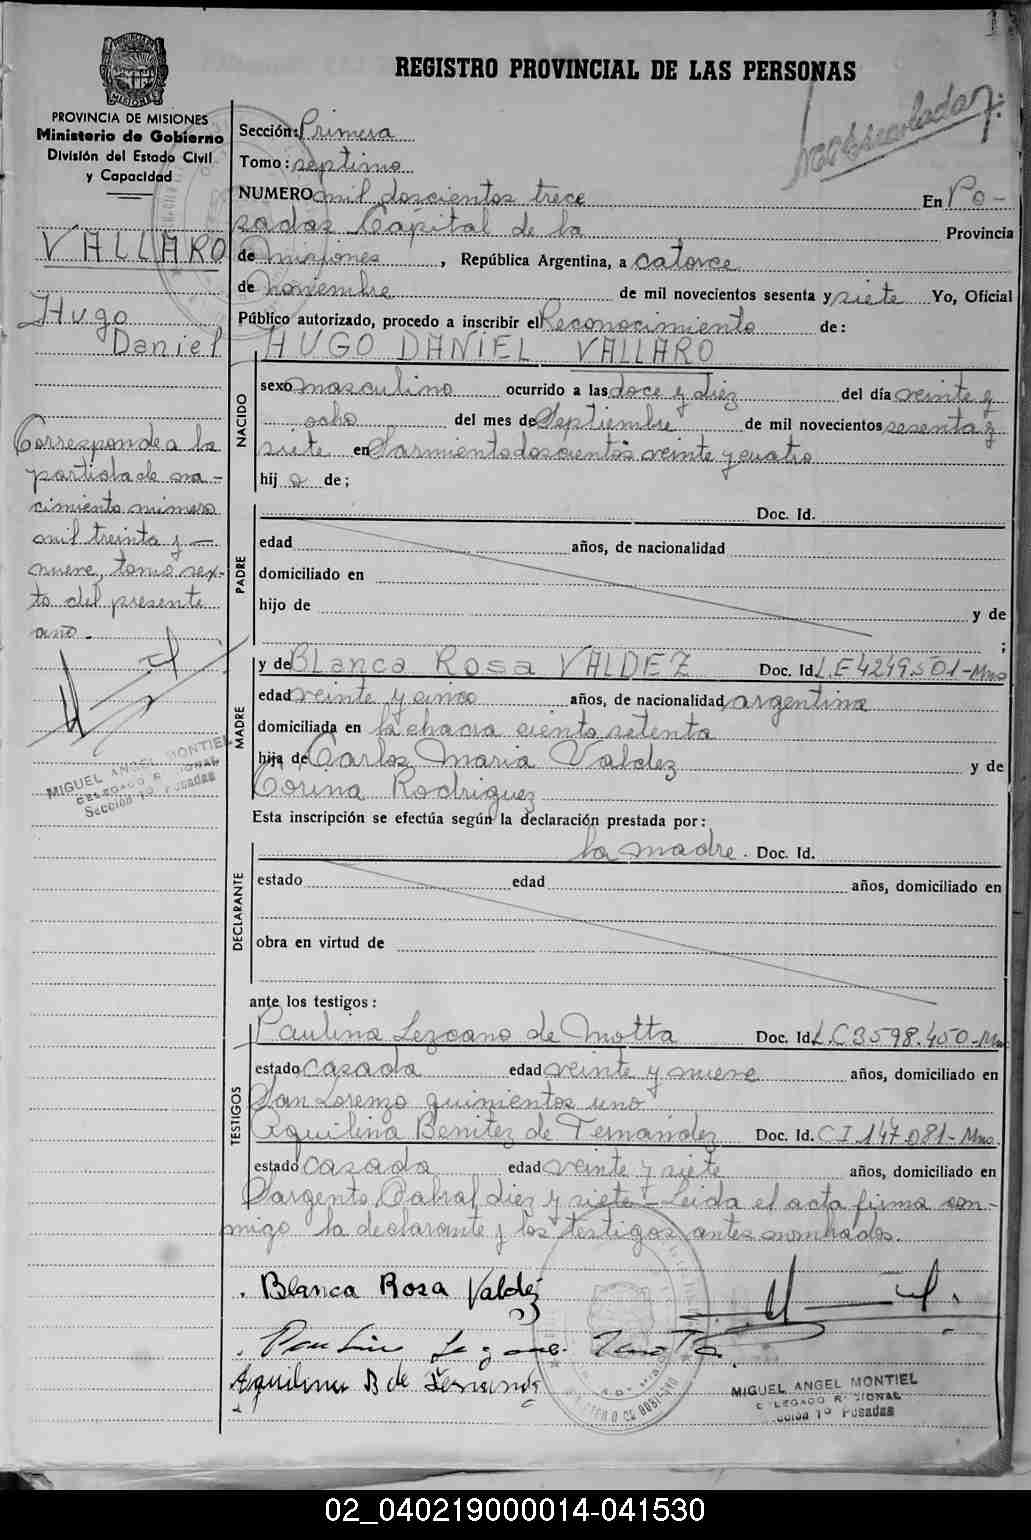 REGISTRO PROVINCIAL DE LAS PERSONAS
PROVINCIA DE MISIONES
Ministerio de Gobierno
División del Estado Civil
y Capacidad
VALLARO
Hugo
Daniel
Corresponde a la
partida de na-
cimiento número
mil treinta y
nueve, tomo sex-
to del presente
año.
MIGUEL ANGEL MONTIEL
DELEGADO REGIONAL
Sección 1º Posadas
Sección: Primera
Tomo: septimo
NUMERO mil doscientos trece En Po-
sadas Capital de la Provincia
de Misiones, República Argentina, a catorce
de noviembre de mil novecientos sesenta y siete Yo, Oficial
Público autorizado, procedo a inscribir el Reconocimiento de:
HUGO DANIEL VALLARO
NACIDO
sexo masculino ocurrido a las doce y diez del día veinte y
ocho del mes de Septiembre de mil novecientos sesenta y
siete en Sarmiento doscientos veinte y cuatro
hij o de;
PADRE
Doc. Id.
edad años, de nacionalidad
domiciliado en
hijo de y de
;
MADRE
y de Blanca Rosa VALDEZ Doc. Id. L.E 4249.501-Mnes
edad veinte y cinco años, de nacionalidad argentina
domiciliada en la chacra ciento setenta
hija de Carlos Maria Valdez y de
Corina Rodriguez
Esta inscripción se efectúa según la declaración prestada por:
DECLARANTE
la madre. Doc. Id.
estado edad años, domiciliado en
obra en virtud de
ante los testigos:
TESTIGOS
Paulina Lezcano de Motta Doc. Id. L.C 3598.450-Mnes
estado casada edad veinte y nueve años, domiciliado en
San Lorenzo quinientos uno
Aquilina Benitez de Fernandez Doc. Id. C I.147.081-Mnes.
estado casada edad veinte y siete años, domiciliado en
Sargento Cabral diez y siete - Leida el acta firma con-
migo la declarante y los testigos antes nombrados.
Blanca Rosa Valdéz
Aquilina B de Fernandez
MIGUEL ANGEL MONTIEL
DELEGADO REGIONAL
Sección 1º Posadas
02_040219000014-041530